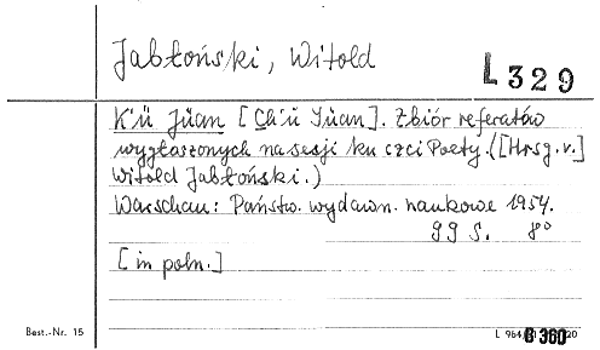 Jabłoński, Witold
L 329
K'ü Jüan [Ch'ü Yüan]. Zbiór referatów
wygłoszonych na sesji ku czci Poety. ([Hrsg. v.]
Witold Jabłoński.)
Warschau: Państw. wydawn. naukowe 1954.
99 S. 8°
[in poln.]
Best.-Nr. 15
L 964/
C 360
20